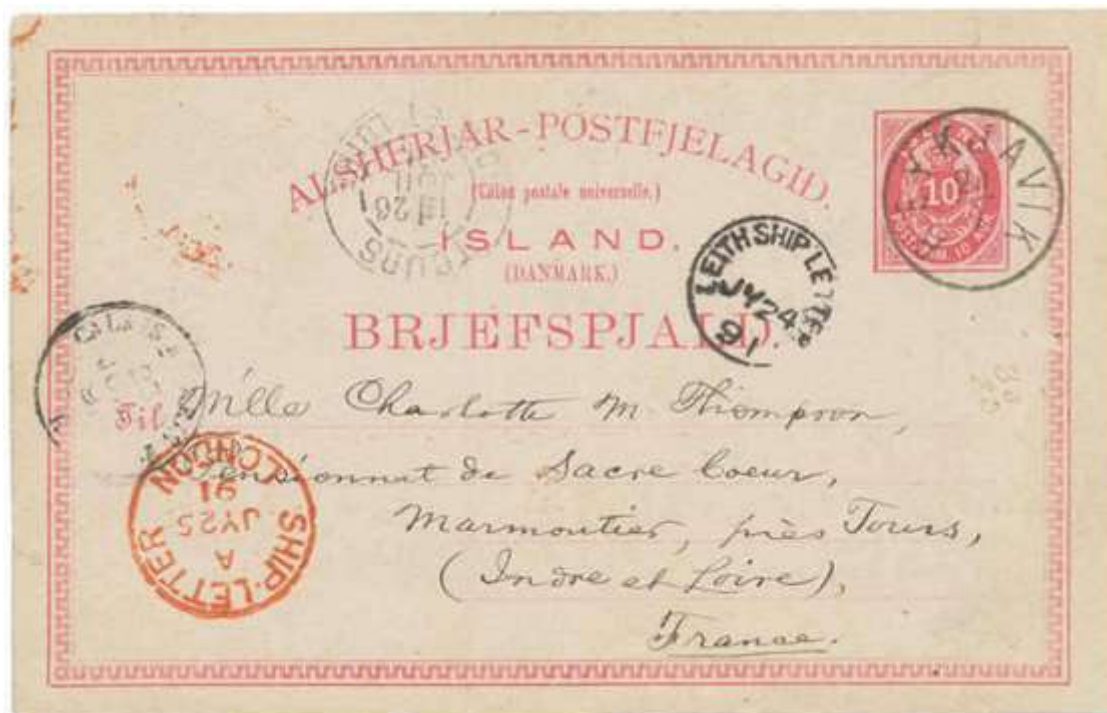 ALSHERJAR-POSTFJELAGID.
(Union postale universelle.)
ÍSLAND.
(DANMARK.)
BRJEFSPJALD.
10
YKJAVIK
LEITH SHIP LETTER
JY 24
91
CALAIS
TOURS
26
Til
Mlle Charlotte M. Thompson,
Pensionnat de Sacre Coeur,
Marmoutier, près Tours,
(Indre et Loire),
France.
SHIP-LETTER LONDON
A
JY 25
91